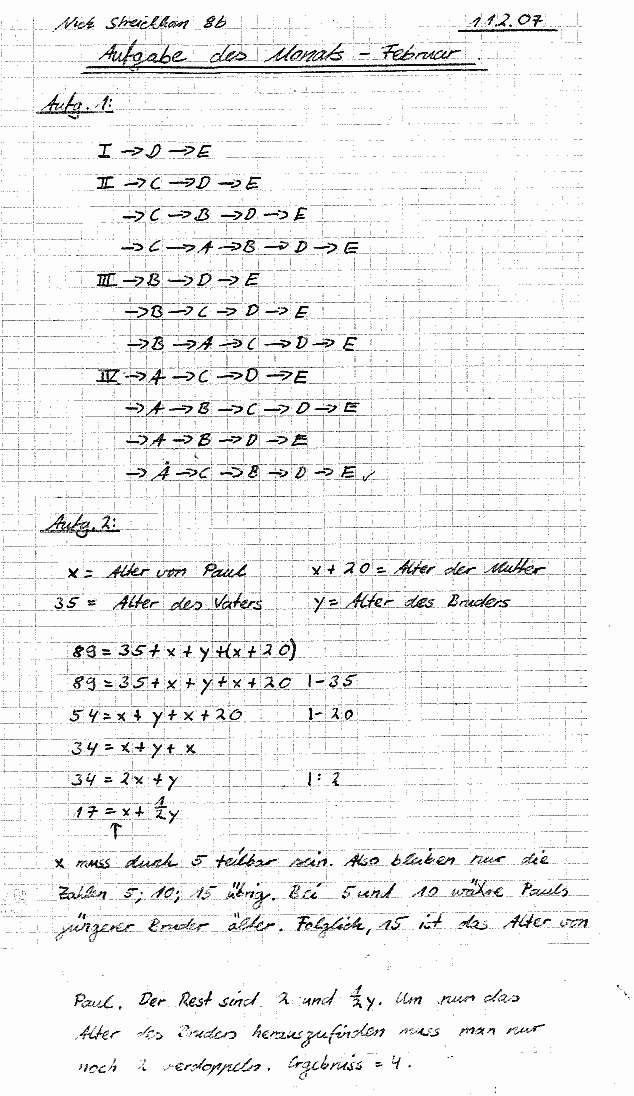 Nick Streichhan 8b 11.2.07
Aufgabe des Monats – Februar.
Aufg. 1:
I → D → E
II → C → D → E
→ C → B → D → E
→ C → A → B → D → E
III → B → D → E
→ B → C → D → E
→ B → A → C → D → E
IV → A → C → D → E
→ A → B → C → D → E
→ A → B → D → E
→ A → C → B → D → E ✓
Aufg. 2:
x = Alter von Paul x + 20 = Alter der Mutter
35 = Alter des Vaters y = Alter des Bruders
89 = 35 + x + y + (x + 20)
89 = 35 + x + y + x + 20 | - 35
54 = x + y + x + 20 | - 20
34 = x + y + x
34 = 2x + y | : 2
17 = x + 1/2 y
↑
x muss durch 5 teilbar sein. Also bleiben nur die
Zahlen 5; 10; 15 übrig. Bei 5 und 10 währe Pauls
jüngerer Bruder älter. Folglich, 15 ist das Alter von
Paul. Der Rest sind 2 und 1/2 y. Um nun das
Alter des Bruders herauszufinden muss man nur
noch 2 verdoppeln. Ergebniss = 4.